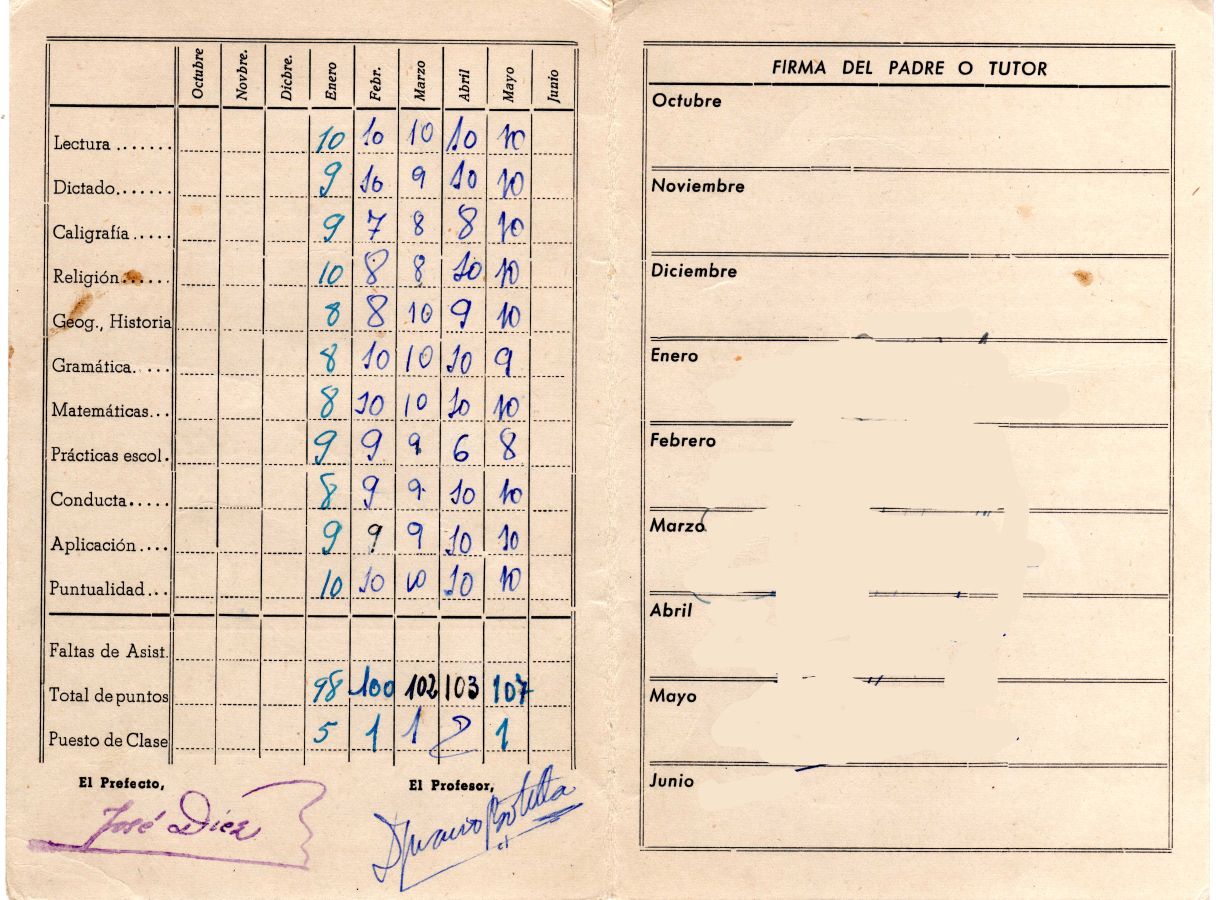 Octubre Novbre. Dicbre. Enero Febr. Marzo Abril Mayo Junio
Lectura ....... 10 10 10 10 10
Dictado....... 9 10 9 10 10
Caligrafía ..... 9 7 8 8 10
Religión...... 10 8 8 10 10
Geog., Historia 8 8 10 9 10
Gramática..... 8 10 10 10 9
Matemáticas... 8 10 10 10 10
Prácticas escol. 9 9 9 6 8
Conducta..... 8 9 9 10 10
Aplicación .... 9 9 9 10 10
Puntualidad... 10 10 10 10 10
Faltas de Asist.
Total de puntos 98 100 102 103 107
Puesto de Clase 5 1 1 2 1
El Prefecto, El Profesor,
José Díez
FIRMA DEL PADRE O TUTOR
Octubre
Noviembre
Diciembre
Enero
Febrero
Marzo
Abril
Mayo
Junio